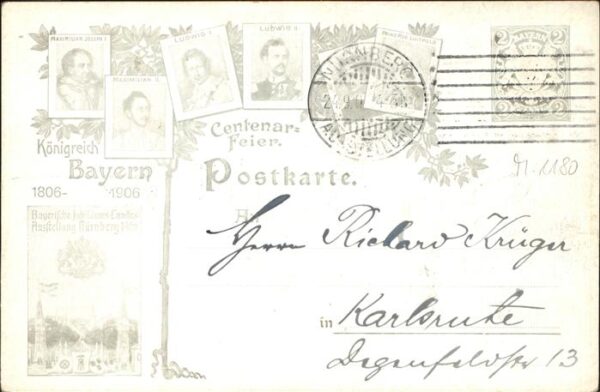 MAXIMILIAN JOSEPH I
MAXIMILIAN II
LUDWIG I
LUDWIG II
PRINZREG. LUITPOLD
NÜRNBERG
AUSSTELLUNG
2
BAYERN
2
Königreich
Bayern
1806-1906
Centenar-
Feier.
Postkarte.
M. 1180
An
Herrn Richard Krüger
in Karlsruhe
Degenfeldstr 13
Bayerische Jubiläums-Landes-
Ausstellung Nürnberg 1906